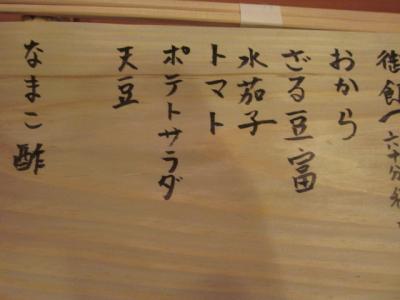 御飯(六十分
おから
ざる豆富
水茄子
トマト
ポテトサラダ
天豆
なまこ酢